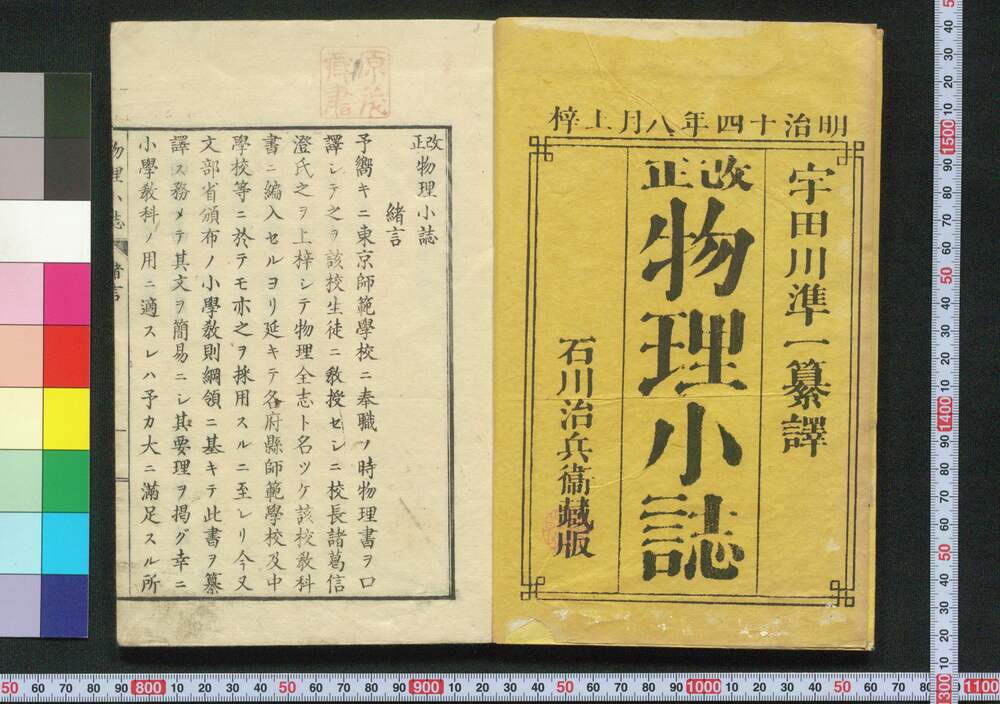 明治十四年八月上梓
宇田川準一纂譯
改正
物理小誌
石川治兵衞藏版
改正物理小誌
緒言
予嚮キニ東京師範學校ニ奉職ノ時物理書ヲ口
譯シテ之ヲ該校生徒ニ教授セシニ校長諸葛信
澄氏之ヲ上梓シテ物理全志ト名ツケ該校教科
書ニ編入セルヨリ延キテ各府縣師範學校及中
學校等ニ於テモ亦之ヲ採用スルニ至レリ今又
文部省頒布ノ小學教則綱領ニ基キテ此書ヲ纂
譯ス務メテ其文ヲ簡易ニシ其要理ヲ掲グ幸ニ
小學教科ノ用ニ適スレハ予カ大ニ滿足スル所
物理小誌 緒言
50 60 70 80 90 800 10 20 30 40 50 60 70 80 90 900 10 20 30 40 50 60 70 80 90 1000 10 20 30 40 50 60 70 80 90 1100
50 40 30 20 10 1500 90 80 70 60 50 40 30 20 10 1400 90 80 70 60 50 40 30 20 10 1300